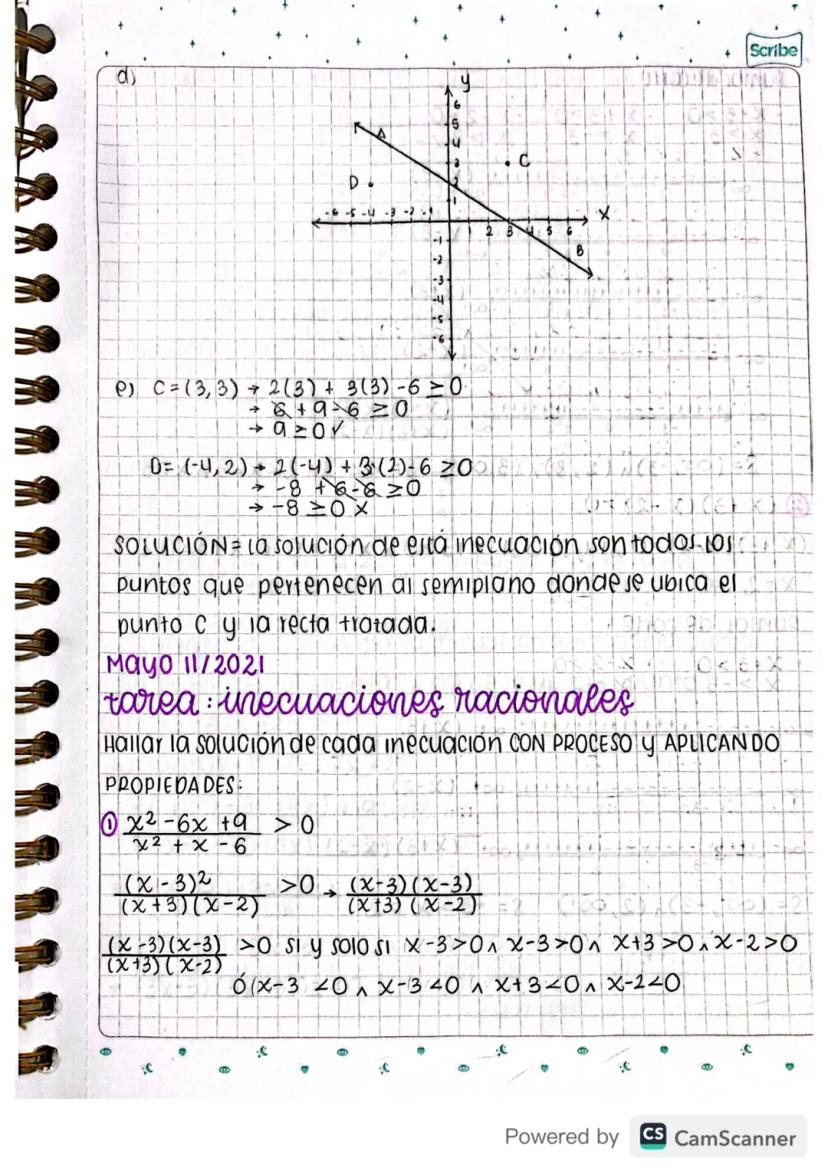 Scribe
d)
y
6
5
A
4
3
C
D
2
1
-6 -5 -4 -3 -2 -1
X
1 2 3 4 5 6
B
-1
-2
-3
-4
-5
-6
e) C = (3,3) → 2(3) + 3(3) -6 ≥ 0
→ 6 + 9 - 6 ≥ 0
→ 9 ≥ 0 ✓
D = (-4,2) → 2(-4) + 3·(2) - 6 ≥ 0
→ -8 + 6 - 6 ≥ 0
→ -8 ≥ 0 x
SOLUCIÓN = la solución de está inecuación son todos los
puntos que pertenecen al semiplano donde se ubica el
punto C y la recta trotada.
Mayo 11/2021
tarea: inecuaciones racionales
Hallar la solución de cada inecuación CON PROCESO y APLICANDO
PROPIEDADES:
① x² - 6x + 9 / x² + x - 6 > 0
(x - 3)² / (x+3)(x-2) > 0 → (x-3)(x-3) / (x+3)(x-2)
(x-3)(x-3) / (x+3)(x-2) > 0 si y solo si x-3>0 ∧ x-3>0 ∧ x+3>0 ∧ x-2>0
Ó (x-3 <0 ∧ x-3<0 ∧ x+3<0 ∧ x-2<0
Powered by CS CamScanner